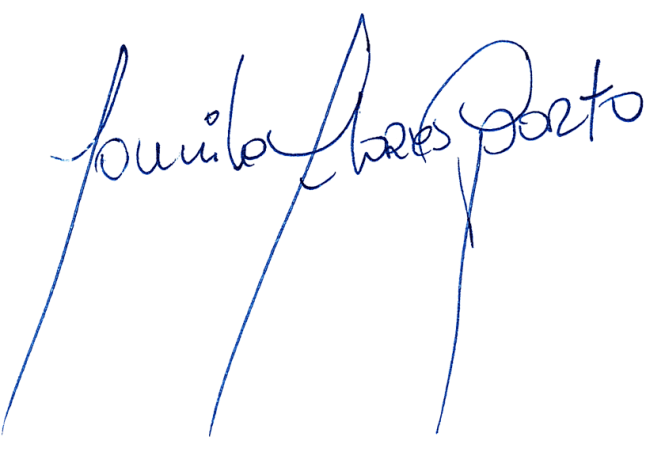 Jamila Flores Porto